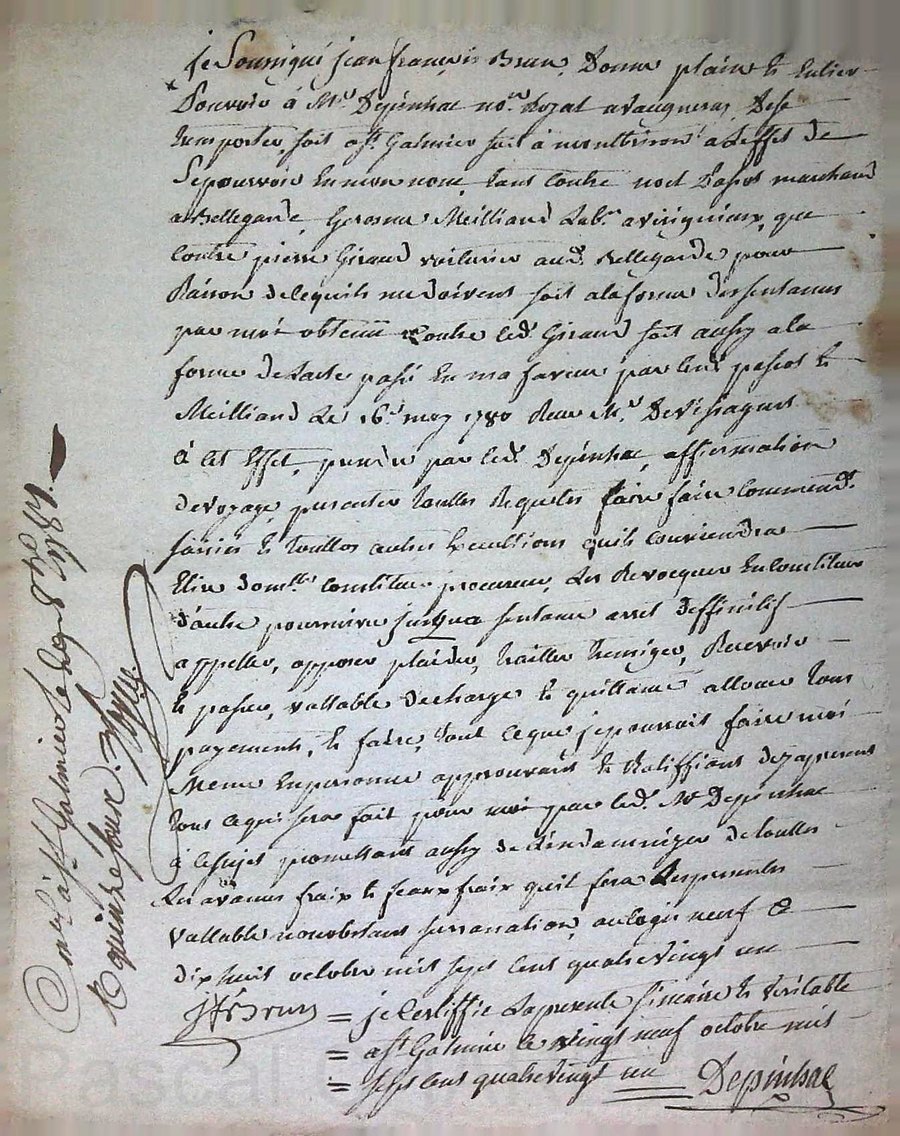 je Soussigné jean françois Brun, Donne plain & Entier
Pouvoir à Mr. Depinhac nore. Royal a vaugneray De se
transporter soit a st. Galmier soit à montbrison à Leffet de
Se pourvoir En mon nom tant Contre marchand
a Bellegarde, Meilliand Labr. a que
Contre pierre Giraud voiturier aud. Bellegarde pour
Raison de ce quils me doivent soit a la forme des sentances
par moi obtenue Contre led. Giraud soit aussy a la
forme de Lacte passé En ma faveur par led. &
Meilliand Le 16e. may 1780 Reçu Me.
à Cet Effet, prendre par led. Depinhac, affirmation
de voyage, presenter touttes Requetes faire faire Commendt.
saisies & touttes autres Executions quil Conviendra
Elire domlle. Constituer procureur, Les Revocquer En Constituer
d'autre poursuivre jusqua sentance arret deffinitif
appeller, opposer plaider, traitter transiger, Recevoir
& passer, vallable decharge & quittance allouer tous
payements, & faire, tout Ce que je pourrait faire moi
Meme En personne approuvant & Ratiffiant des a present
tous Ce qui sera fait pour moi par led. Mr Depinhac
à Ce sujet promettant aussy de Lindamnizer de touttes
Les avances fraix & feaux fraix quil fera Les presentes
vallable nonobstant surannation, neuf
dix huit octobre mil sept Cent quatrevingt un
Jfs Brun = je Certiffie La presente sincere & veritable
= a st. Galmier le vingt neuf octobre mil
= sept Cent quatrevingt un Depinhac
Con. a st. Galmier le 8bre 1781.
R quinze sous